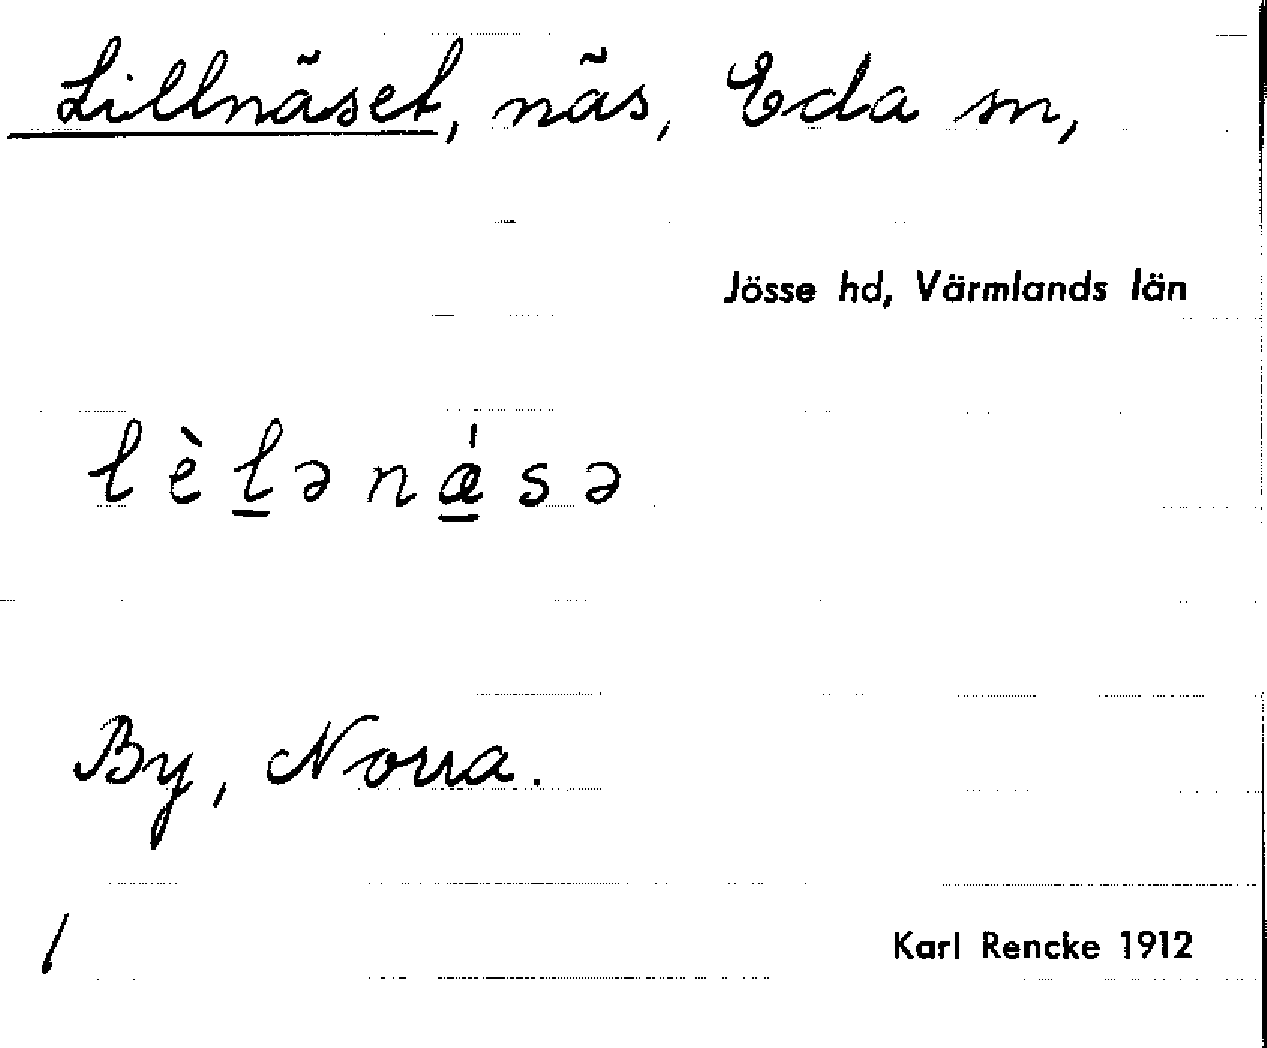 Lillnäset, näs, Eda sn,
Jösse hd, Värmlands län
lèl̲ənǽ̲sə
By, Norra.
/
Karl Rencke 1912